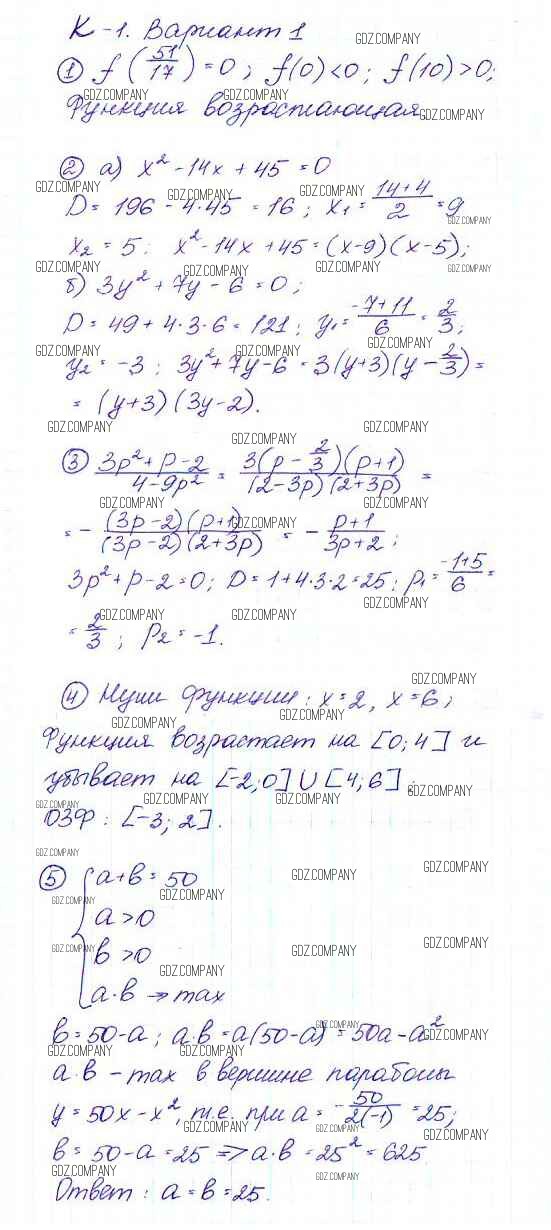 К-1. Вариант 1
① f(51/17) = 0; f(0)<0; f(10)>0;
Функция возрастающая
② а) x² - 14x + 45 = 0
D = 196 - 4·45 = 16; x₁ = (14+4)/2 = 9
x₂ = 5; x² - 14x + 45 = (x-9)(x-5);
б) 3y² + 7y - 6 = 0;
D = 49 + 4·3·6 = 121; y₁ = (-7+11)/6 = 2/3;
y₂ = -3; 3y² + 7y - 6 = 3(y+3)(y - 2/3) =
= (y+3)(3y-2).
③ (3p² + p - 2)/(4 - 9p²) = 3(p - 2/3)(p+1)/((2-3p)(2+3p)) =
= - (3p-2)(p+1)/((3p-2)(2+3p)) = - (p+1)/(3p+2);
3p² + p - 2 = 0; D = 1 + 4·3·2 = 25; p₁ = (-1+5)/6 =
= 2/3; p₂ = -1.
④ Нули функции: x = 2, x = 6;
Функция возрастает на [0; 4] и
убывает на [-2; 0] U [4; 6];
ОЗФ: [-3; 2].
⑤ { a + b = 50
a > 0
b > 0
a·b → max
b = 50 - a; a·b = a(50 - a) = 50a - a²
a·b - max в вершине параболы
y = 50x - x², т.е. при a = -50/(2(-1)) = 25;
b = 50 - a = 25 => a·b = 25² = 625.
Ответ: a = b = 25.
GDZ.COMPANY